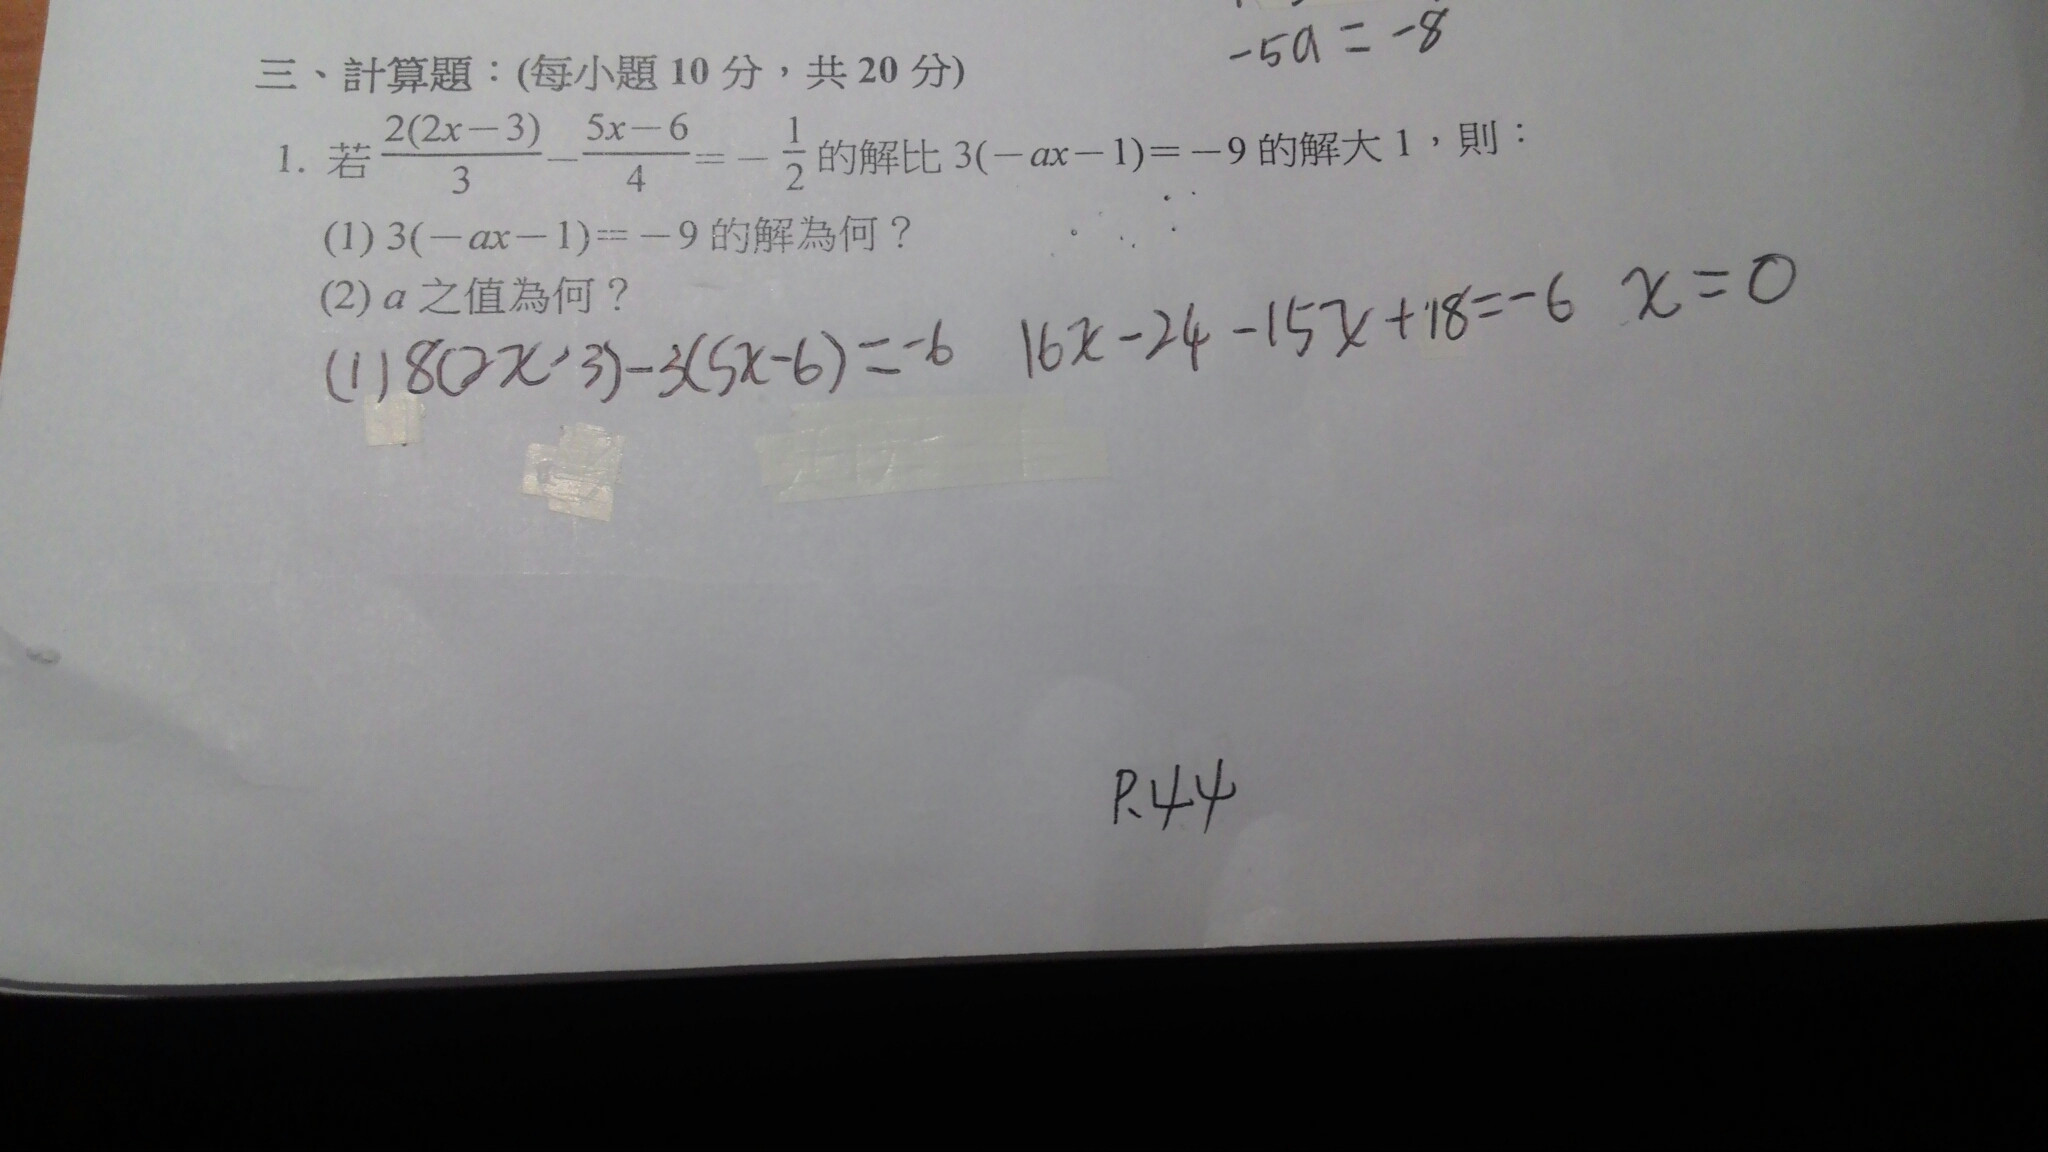 -5a = -8
三、計算題：(每小題 10 分，共 20 分)
1. 若 \frac{2(2x－3)}{3}－\frac{5x－6}{4}＝－\frac{1}{2} 的解比 3(－ax－1)＝－9 的解大 1，則：
(1) 3(－ax－1)＝－9 的解為何？
(2) a 之值為何？
(1) 8(2x-3)-3(5x-6)=-6 16x-24-15x+18=-6 x=0
P.44